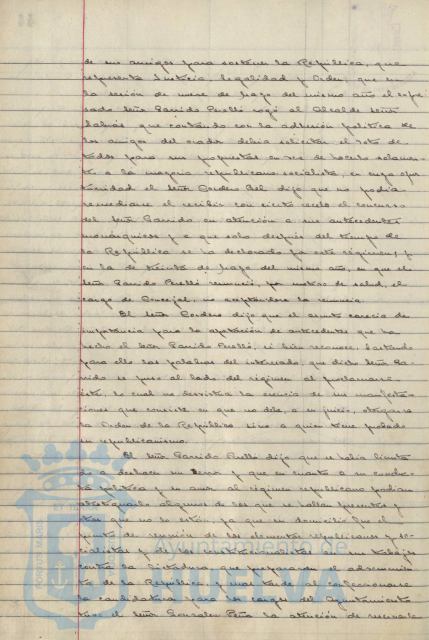 de sus amigos para sostener la República, que
representa Justicia, legalidad y Orden; que en
la sesión de nueve de Mayo del mismo año el expre
sado Señor Garrido Perelló rogó al Alcalde Señor
que contando con la adhesión política de
los amigos del orador debía solicitar el voto de
todos para sus propuestas en vez de hacerlo solamen-
te a la mayoría republicano socialista, en cuya opor
tunidad el Señor Cordero Bel dijo que no podía
remediarse el recibir con cierto recelo el concurso
del Señor Garrido en atención a sus antecedentes
monárquicos y a que solo después del tiempo de
la República se ha declarado por este régimen; y
en la de treinta de Mayo del mismo año, en que el
Señor Garrido Perelló renunció, por motivos de salud, el
cargo de Concejal, no aceptándose la renuncia.
El Señor Cordero dijo que el asunto carecía de
importancia para la aportación de antecedentes que ha
hecho el Señor Garrido Perelló, si bien reconoce, bastando
para ello las palabras del interesado, que dicho Señor Ga-
rrido se puso al lado del régimen al proclamarse
éste, lo cual no desvirtúa la esencia de sus manifesta-
ciones que consiste en que no debe, a su juicio, otorgarse
la Orden de la República sino a quien tiene probado
su republicanismo.
El Señor Garrido Perelló dijo que se había limita
do a deshacer un error y que en cuanto a su conduc-
ta política y su amor al régimen republicano podían
atestiguarlo algunos de los que se hallan presentes y
otros que no lo están, ya que su domicilio fue el
punto de reunión de los elementos republicanos y so-
cialistas y de los constitucionalistas en sus trabajos
contra la Dictadura, que prepararon el advenimien
to de la República, y mas tarde al confeccionarse
la candidatura para los cargos del Ayuntamiento
tuvo el Señor González Peña la atención de
Ayuntamiento de